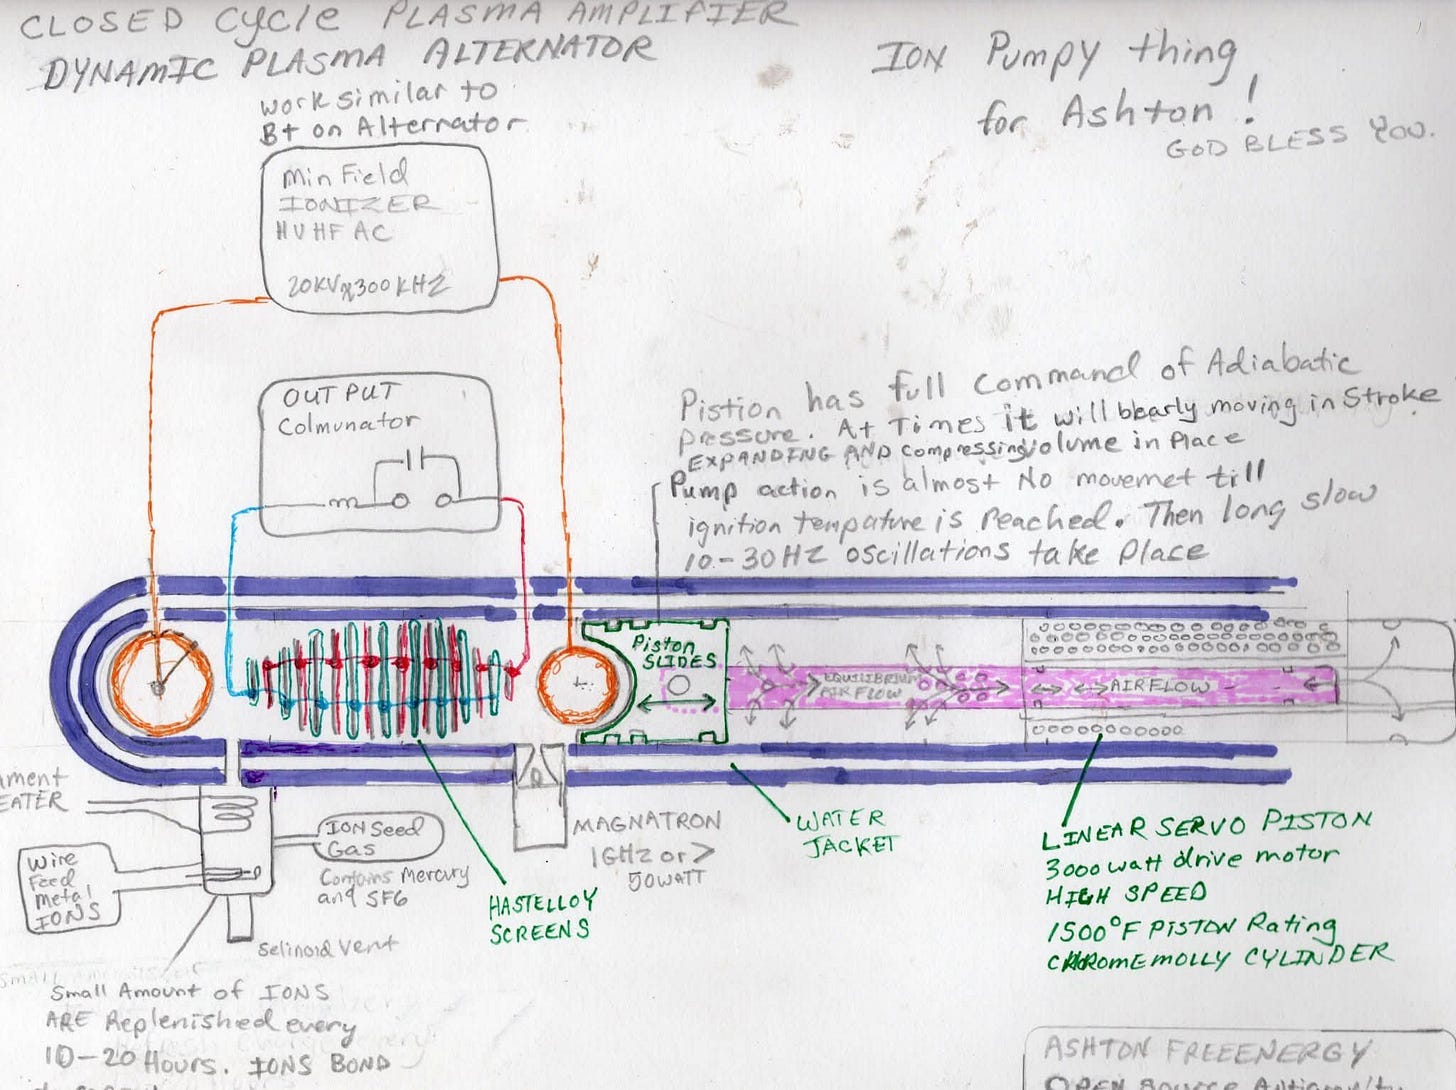 CLOSED Cycle PLASMA AMPLIFIER
DYNAMIC PLASMA ALTERNATOR
work similar to
B+ on Alternator
Ion Pumpy thing
for Ashton!
GOD BLESS YOU.
Min Field
IONIZER
HVHF AC
20KV 300KHZ
OUTPUT
Colmunator
Pistion has full command of Adiabatic
pressure. At Times it will blearly moving in Stroke
EXPANDING AND compressing volume in Place
Pump action is almost No movemet till
ignition tempature is Reached. Then long slow
10-30HZ oscillations take Place
Piston
SLIDES
EQUILIBRIUM
AIR FLOW
AIRFLOW
ament
EATER
Wire
Feed
metal
IONS
ION Seed
Gas
Contains Mercury
and SF6
Selinoid Vent
HASTELLOY
SCREENS
MAGNATRON
1GHZ or >
50WATT
WATER
JACKET
LINEAR SERVO PISTON
3000 watt drive motor
HIGH SPEED
1500°F PISTON Rating
CHROMEMOLLY CYLINDER
Small Amount of IONS
ARE Replenished every
10-20 Hours. IONS BOND
ASHTON FREEENERGY
OPEN Source